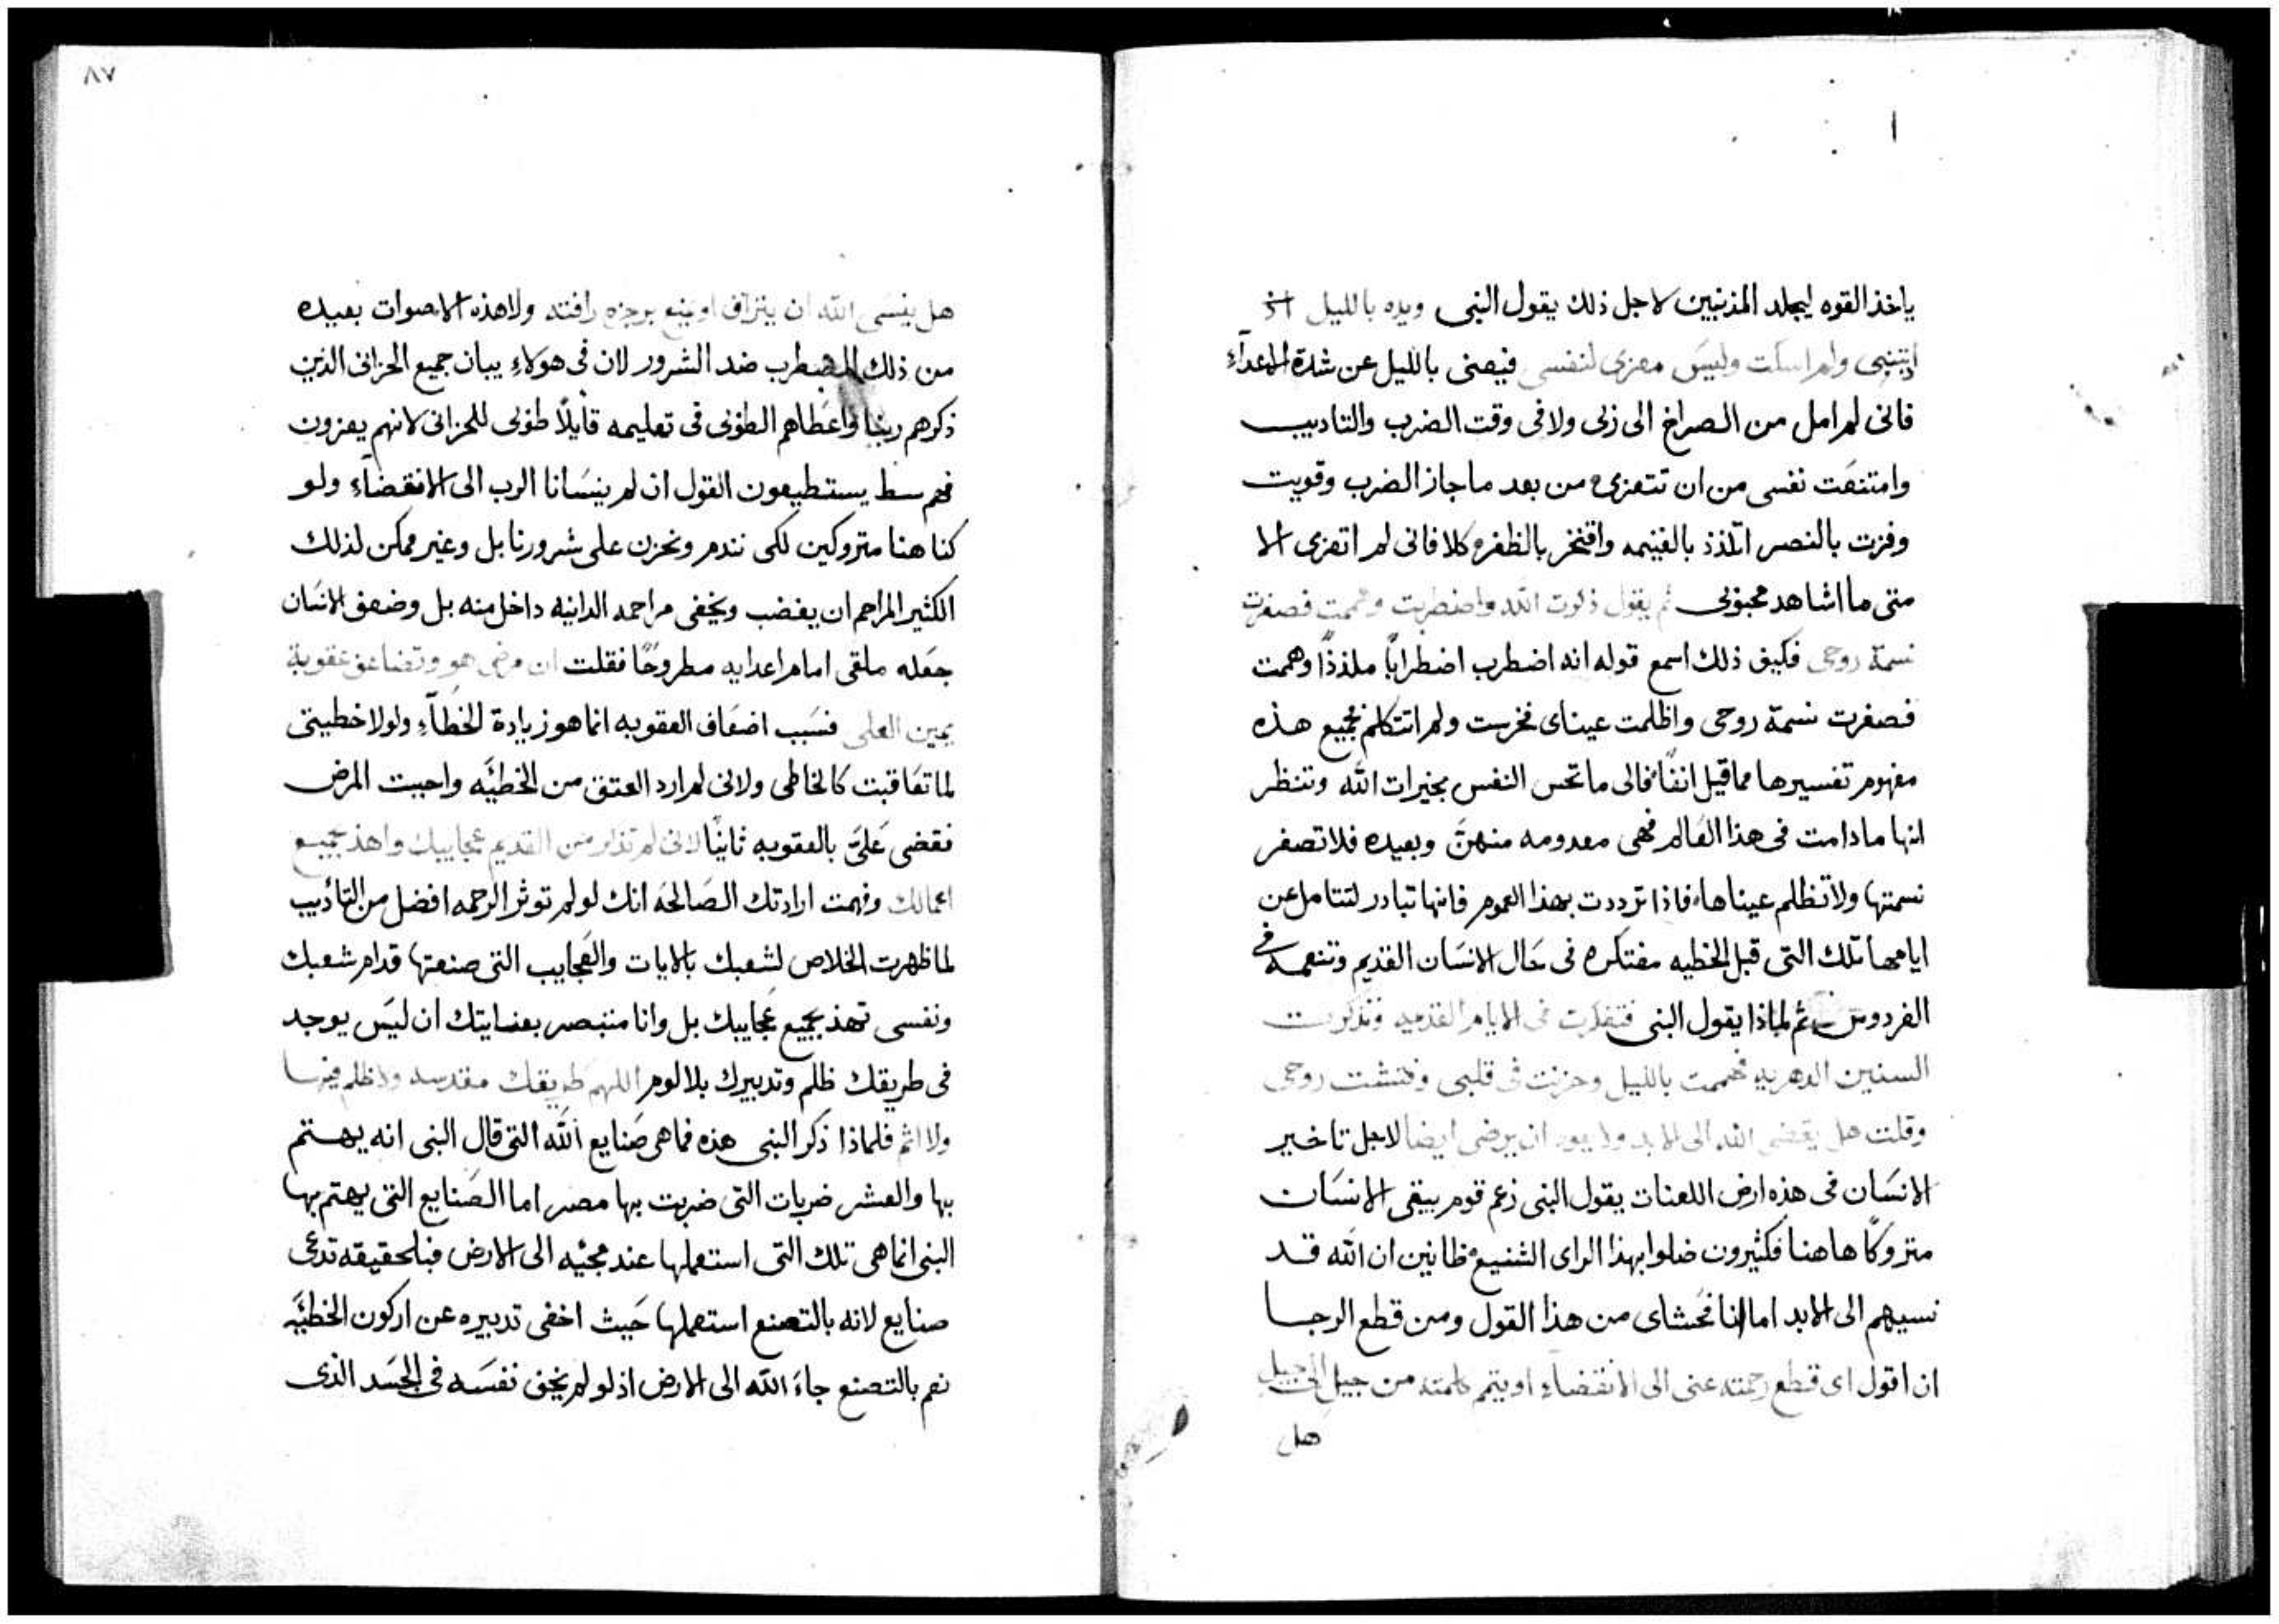 ياخذ القوه ليجلد المذنبين لاجل ذلك يقول النبى ويده بالليل
ولم اسكت وليس معزى لنفسى فيعنى بالليل عن شدة الاعدآء
فانى لم امل من الصراخ الى زلى ولا فى وقت الضرب والتاديب
وامتنعت نفسى من ان تتعزى من بعد ما جاز الضرب وقويت
وفزت بالنصر اتلذذ بالغنيمه وافتخر بالظفر كلا فانى لم اتعزى الا
متى ما اشاهد محبوبى ثم يقول ذكرت الله واضطربت وهممت فصغرت
نسمة روحى فكيف ذلك اسمع قوله انه اضطرب اضطرابًا ملذذًا وهمت
فصغرت نسمة روحى واظلمت عيناى فخرست ولم اتتكلم فجميع هذه
مفهوم تفسيرها مما قيل انفًا فالى ما تحس النفس بخيرات الله وتنظر
انها ما دامت فى هذا العالم فهى معدومه منهنَّ وبعيده فلا تصغر
نسمتها ولا تظلم عيناها فاذا ترددت بهذا الهموم فانها تبادر لتتامل عن
ايامها تلك التى قبل الخطيه مفتكره فى حال الانسان القديم وتنعمه فى
الفردوس ثم لماذا يقول النبى فتفكرت فى الايام القديمه وتذكرت
السنين الدهريه فهممت بالليل وحزنت فى قلبى وفتشت روحى
وقلت هل يقصى الله الى الابد ولا يعود ان يرضى ايضا لاجل تاخير
الانسان فى هذه ارض اللعنات يقول النبى زعم قوم يبقى الانسان
متروكًا هاهنا فكثيرون ضلوا بهذا الراى الشنيع ظانين ان الله قد
نسيهم الى الابد اما انا فحشاى من هذا القول ومن قطع الرجا
ان اقول اى قطع رحمته عنى الى الانقضاء او يتم كلمته من جيل الى جيل
هل
٨٧
هل ينسى الله ان يتراف او يمنع برجزه رافته ولا هذه الاصوات بعيده
من ذلك المضطرب ضد الشرور لان فى هولاء يبان جميع الحزانى الذين
ذكرهم ربنا واعطاهم الطوبى فى تعليمه قايلًا طوبى للحزانى لانهم يعزون
فهم سط يستطيعون القول ان لم ينسانا الرب الى الانقضاء ولو
كنا هنا متروكين لكى نندم ونحزن على شرورنا بل وغير ممكن لذلك
الكثير المراحم ان يغضب ويخفى مراحمه الدانيه داخل منه بل وضعف الانسان
جعله ملقى امام اعدايه مطروحًا فقلت ان مرضى هو وتضاعف عقوبة
يمين العلى فسبب اضعاف العقوبه انما هو زيادة الخطآء ولولا خطيتى
لما تعاقبت كالخاطى ولانى لم ارد العتق من الخطيَّه واحببت المرض
فقضى عَليَّ بالعقوبه ثانيًا لانى لم تذكر من القديم عجايبك واهذ بجميع
اعمالك وفهمت ارادتك الصالحه انك لو لم توثر الرحمه افضل من التأديب
لما ظهرت الخلاص لشعبك بالايات والعجايب التى صنعتها قدام شعبك
ونفسى تهذ بجميع عجايبك بل وانا متبصر بعنايتك ان ليس يوجد
فى طريقك ظلم وتدبيرك بلا لوم اللهم طريقك مقدسه ولا ظلم فيها
ولا اثم فلماذا ذكر النبى هذه فما هى صنايع الله التى قال النبى انه يهتم
بها والعشر ضربات التى ضربت بها مصر اما الصنايع التى يهتم بها
النبى انما هى تلك التى استعملها عند مجئيه الى الارض فبالحقيقه تدعى
صنايع لانه بالتصنع استعملها حيث اخفى تدبيره عن اركون الخطيَّه
نعم بالتصنع جاء الله الى الارض اذ لو لم يخف نفسه فى الجسد الذى